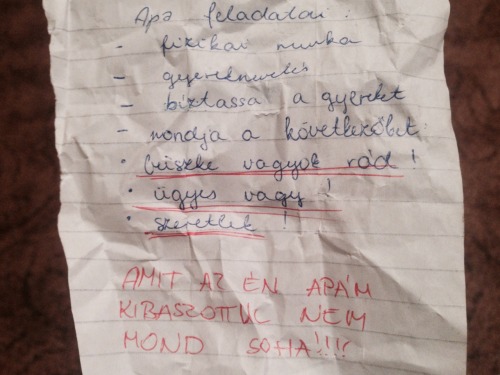 Apa feladatai:
- fizikai munka
- gyereknevelés
- bíztassa a gyereket
- mondja a következőket:
• büszke vagyok rád!
• ügyes vagy!
• szeretlek!
AMIT AZ ÉN APÁM
KIBASZOTTUL NEM
MOND SOHA!!!!